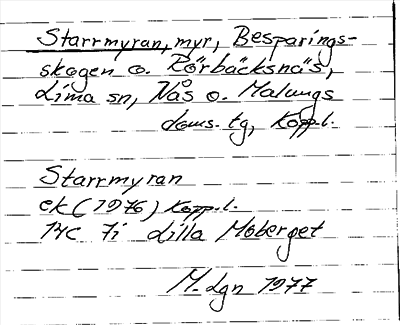 Starrmyran, myr, Besparings-
skogen o. Rörbäcksnäs,
Lima sn, Nås o. Malungs
doms. tg, Kopp.l.
Starrmyran
ek (1976) Kopp.l.
14C 7i Lilla Moberget
M. Lgn 1977